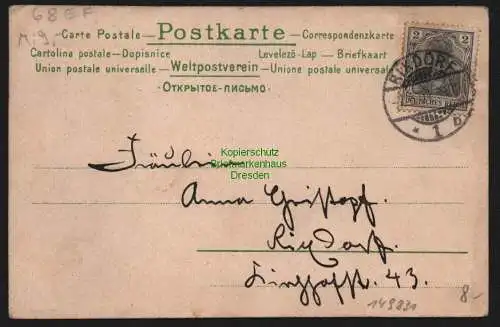 68EF
M-9.
Carte Postale — Postkarte — Correspondenzkarte
Cartolina postale – Dopisnice Levelező-Lap — Briefkaart
Union postale universelle — Weltpostverein — Unione postale universale
ОТКРЫТОЕ-ПИСЬМО
2 2
RIXDORF
* 1 b.
Kopierschutz
Briefmarkenhaus
Dresden
Fräulein
Anna
Rixdorf.
43.
149831
8-